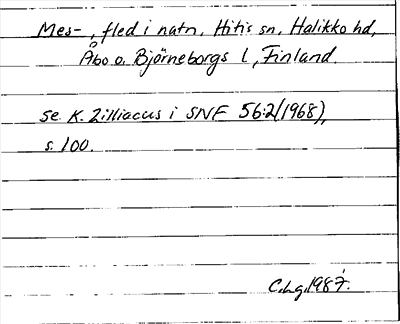 Mes-, fled i natn. Hitis sn, Halikko hd,
Åbo o. Björneborgs l, Finland.
se K. Zilliacus i SNF 56:2(1968),
s. 100.
C.Lg.1987.